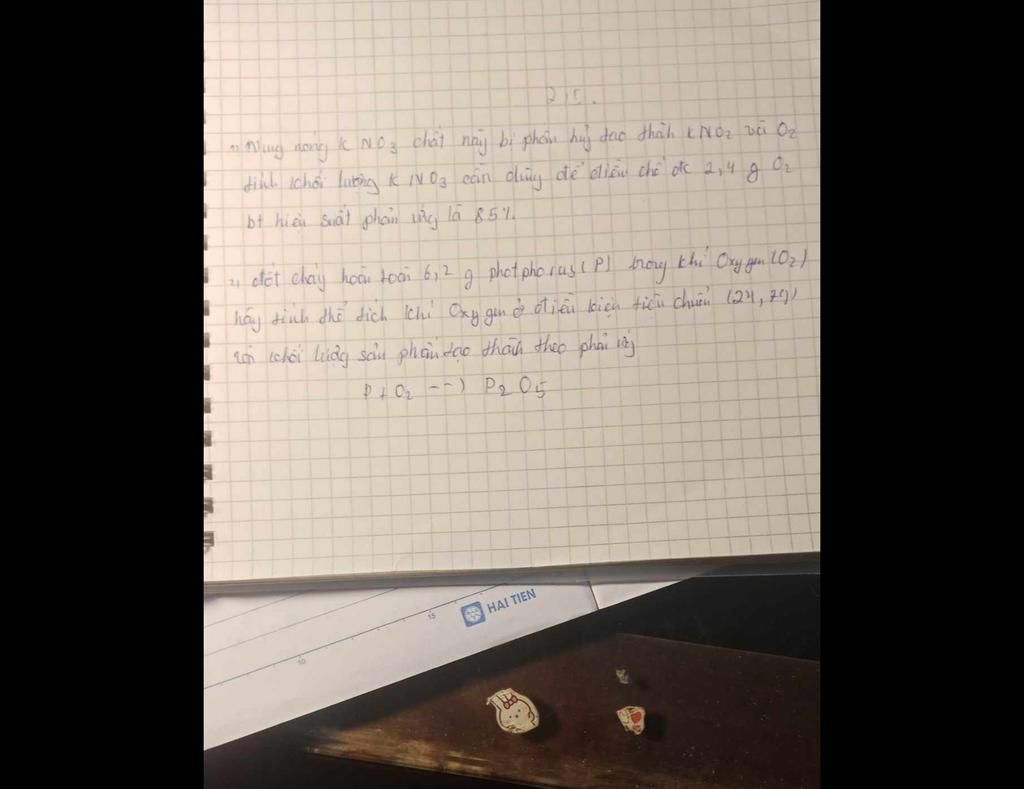 2,5.
1, Nung nóng K NO3 chất này bị phân huỷ tạo thành KNO2 và O2
tính khối lượng K NO3 cần dùng để điều chế đc 2,4 g O2
bt hiệu suất phản ứng là 85%.
2, đốt cháy hoàn toàn 6,2 g photphorus (P) trong khí Oxygen (O2)
hãy tính thể tích khí Oxygen ở điều kiện tiêu chuẩn (24,79)
khối lượng sản phẩm tạo thành theo phản ứng
P + O2 --) P2 O5
HAI TIEN
15
10